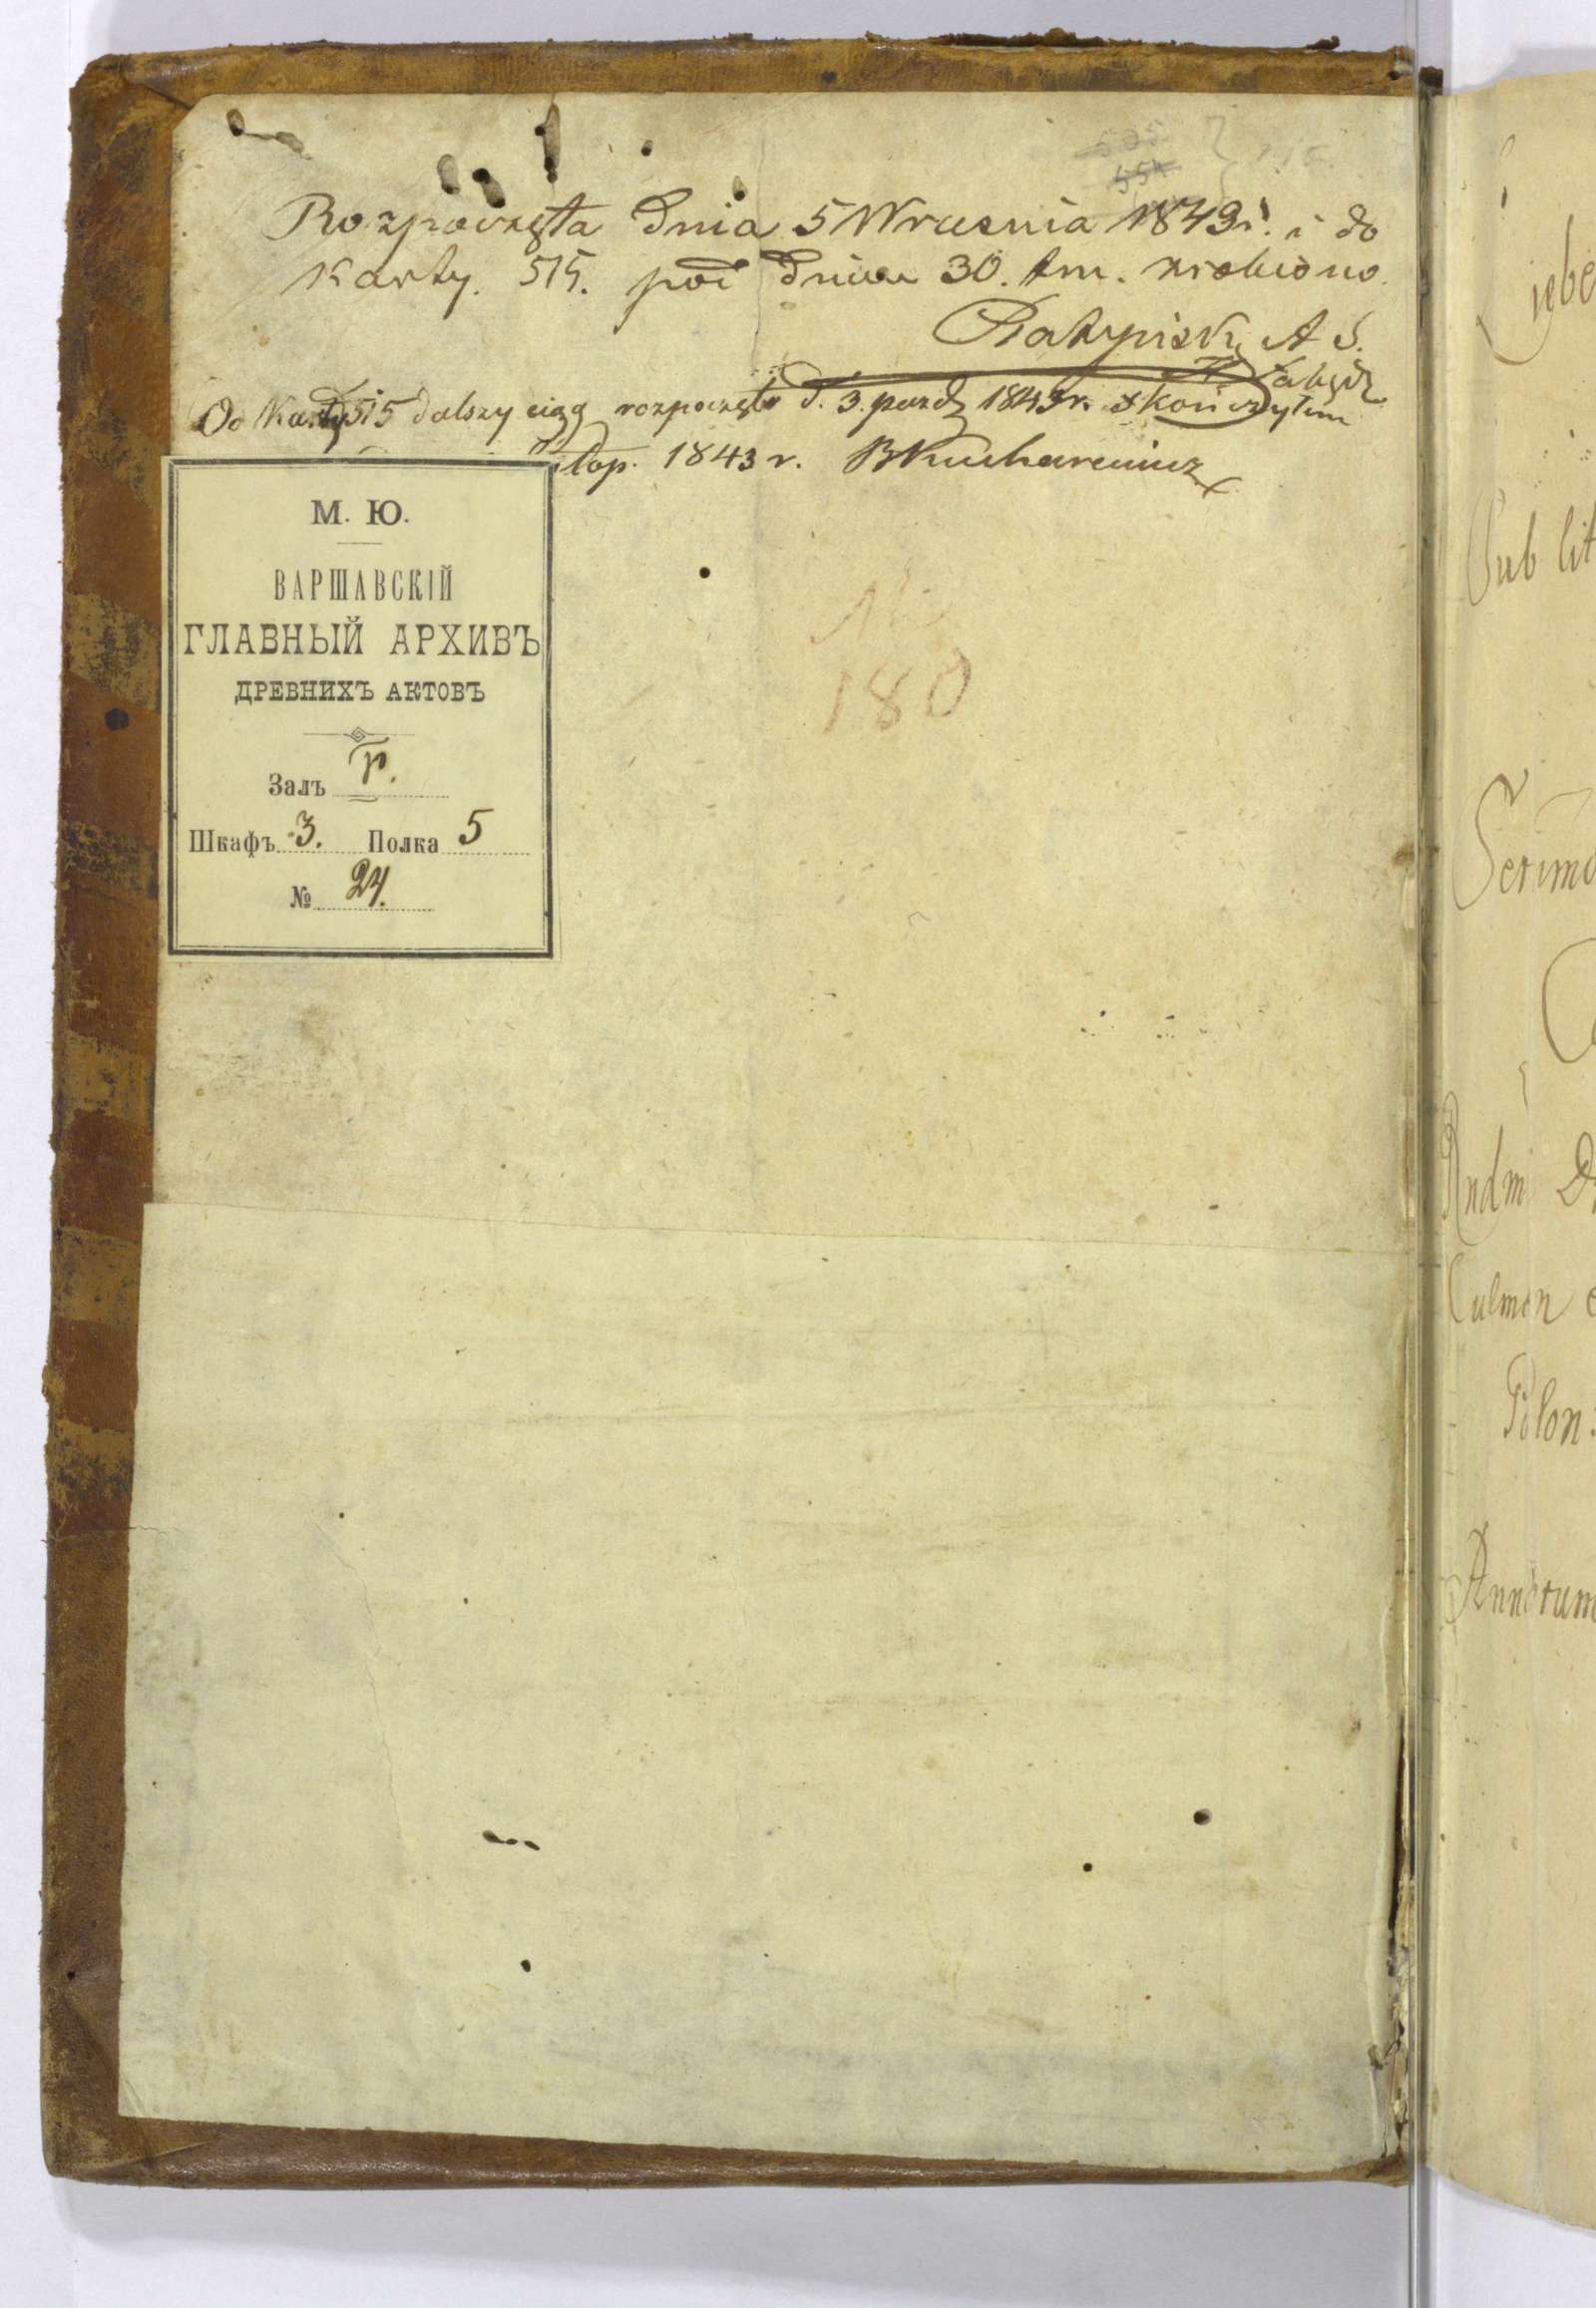 505
554
Rozpoczęta dnia 5 Wrzesnia 1843 r. i do
Karty. 515. pod dniem 30. tm. zrobiono.
A S.
Od Karty 515 dalszy ciąg rozpoczęto d. 3. pazdz 1843 r. skończyłem
stop. 1843 r. BKucharewicz
М. Ю.
ВАРШАВСКІЙ
ГЛАВНЫЙ АРХИВЪ
ДРЕВНИХЪ АКТОВЪ
Залъ Р.
Шкафъ 3. Полка 5
№ 24.
No
180
Liebe
Sub lit
Serimo
Rndm
Culmen
Polon:
Annorum